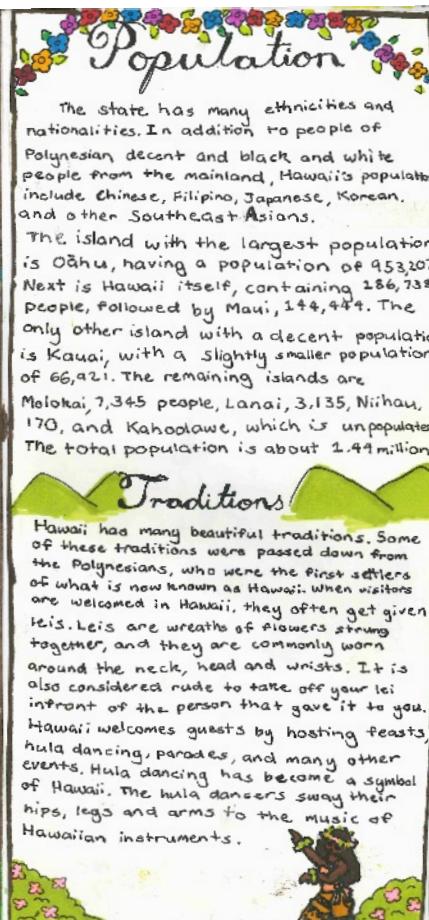 Population
The state has many ethnicities and
nationalities. In addition to people of
Polynesian decent and black and white
people from the mainland, Hawaii's populatio
include Chinese, Filipino, Japanese, Korean.
and other Southeast Asians.
The island with the largest population
is Oāhu, having a population of 953,207
Next is Hawaii itself, containing 186,738
people, followed by Maui, 144,444. The
only other island with a decent populatio
is Kauai, with a slightly smaller population
of 66,921. The remaining islands are
Molokai, 7,345 people, Lanai, 3,135, Niihau,
170, and Kahoolawe, which is unpopulated
The total population is about 1.44 million
Traditions
Hawaii has many beautiful traditions. Some
of these traditions were passed down from
the Polynesians, who were the first settlers
of what is now known as Hawaii. When visitors
are welcomed in Hawaii, they often get given
leis. Leis are wreaths of flowers strung
together, and they are commonly worn
around the neck, head and wrists. It is
also considered rude to take off your lei
infront of the person that gave it to you.
Hawaii welcomes guests by hosting feasts,
hula dancing, parades, and many other
events. Hula dancing has become a symbol
of Hawaii. The hula dancers sway their
hips, legs and arms to the music of
Hawaiian instruments.